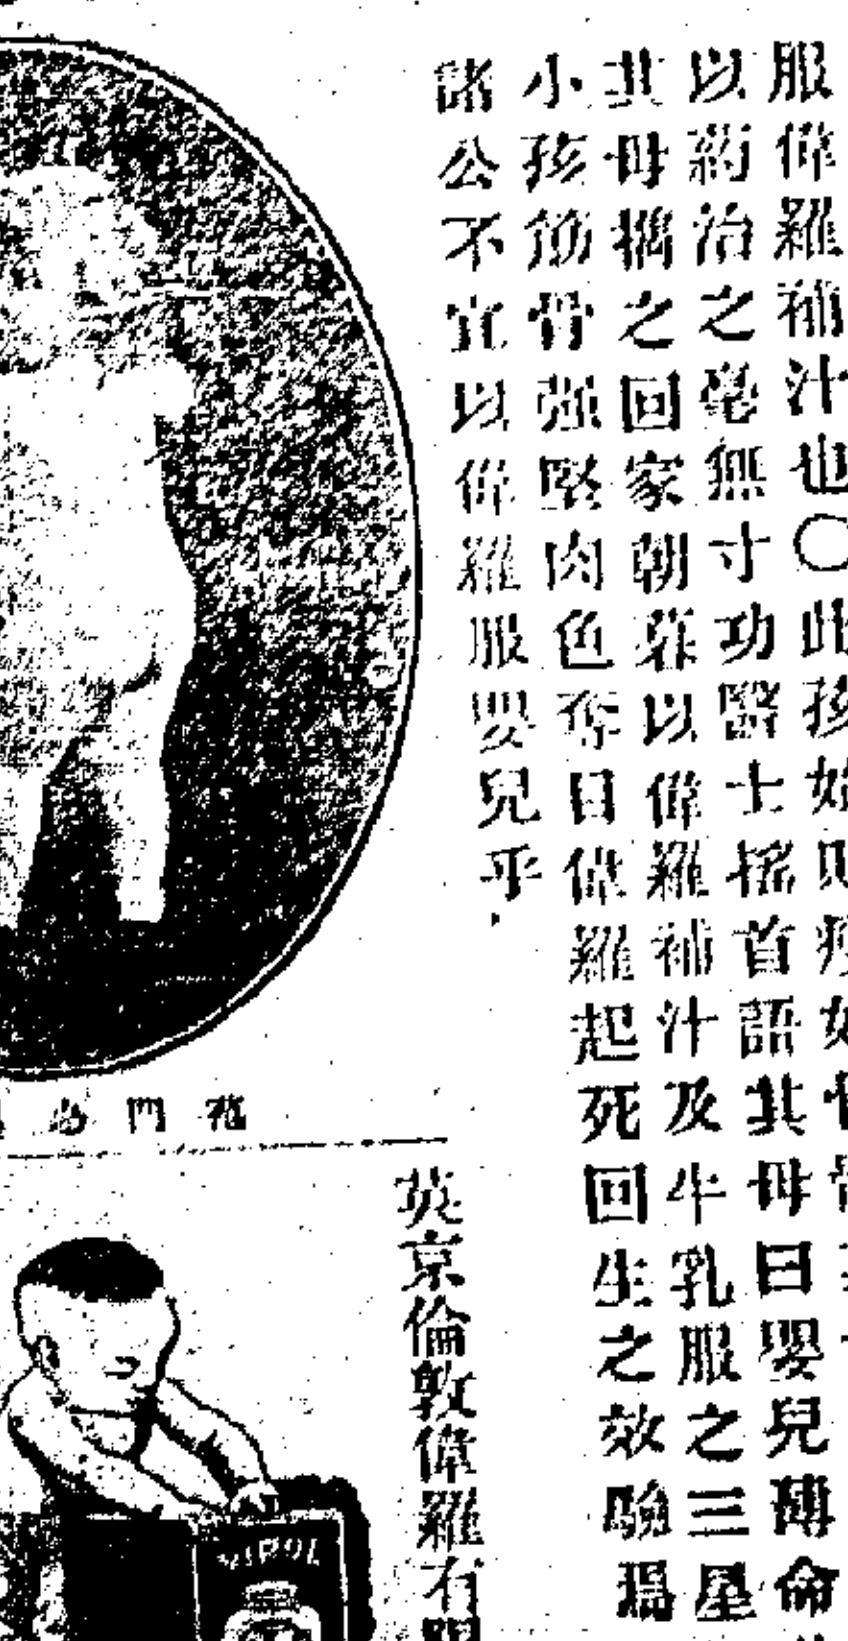 服偉羅補汁也〇此孩始則瘦如
以葯治之毫無寸功醫士搖首語其母曰嬰兒薄命
其母攜之回家朝暮以偉羅補汁及牛乳服之三星
小孩筋骨强堅肉色奪目偉羅起死回生之效驗
諸公不宜以偉羅服嬰兒乎
英京倫敦偉羅有限
VIROL